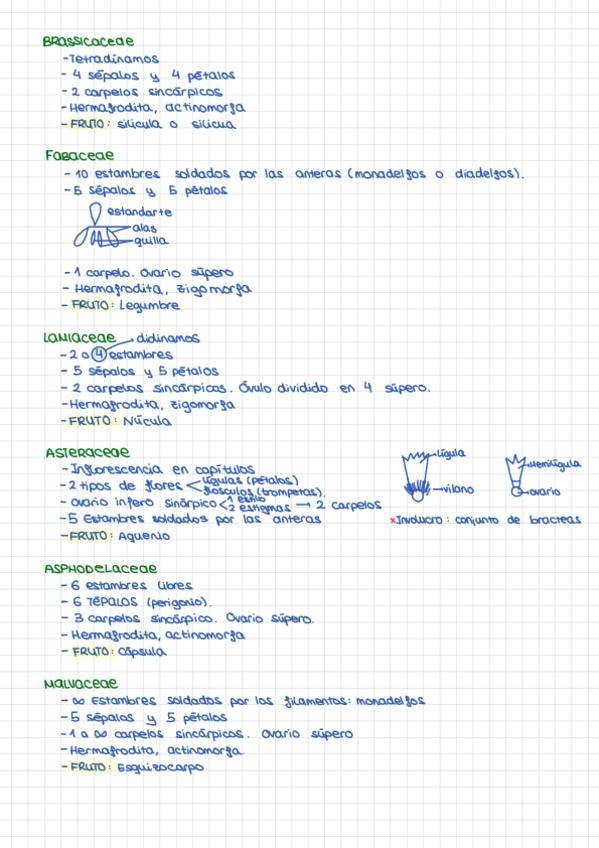 BRASSICACEAE
-Tetradínamos
- 4 sépalos y 4 pétalos
- 2 carpelos sincárpicos
- Hermafrodita, actinomorfa
- FRUTO: silicula o silicua
FABACEAE
- 10 estambres soldados por las anteras (monadelfos o diadelfos).
- 5 sépalos y 5 pétalos
estandarte
alas
quilla
- 1 carpelo. Ovario súpero
- Hermafrodita, zigomorfa
- FRUTO: Legumbre
LAMIACEAE didinamos
- 2 o 4 estambres
- 5 sépalos y 5 pétalos
- 2 carpelos sincárpicos. Óvulo dividido en 4 súpero.
-Hermafrodita, zigomorfa
- FRUTO: Núcula
ASTERACEAE
- Inflorescencia en capítulos
- 2 tipos de flores < lígulas (pétalos)
flósculos (trompetas).
- ovario ínfero sinárpico < 1 estilo
2 estigmas → 2 carpelos
-5 Estambres soldados por las anteras
- FRUTO: Aquenio
Lígula
vilano
Hemilígula
ovario
*Involucro: conjunto de bracteas
ASPHODELACEAE
- 6 estambres libres
- 6 TÉPALOS (perigonio).
- 3 carpelos sincárpico. Ovario súpero.
- Hermafrodita, actinomorfa
- FRUTO: Cápsula
MALVACEAE
- ∞ Estambres soldados por los filamentos: monadelfos
- 5 sépalos y 5 pétalos
-1 a ∞ carpelos sincárpicos. Ovario súpero
- Hermafrodita, actinomorfa
- FRUTO: Esquizocarpo